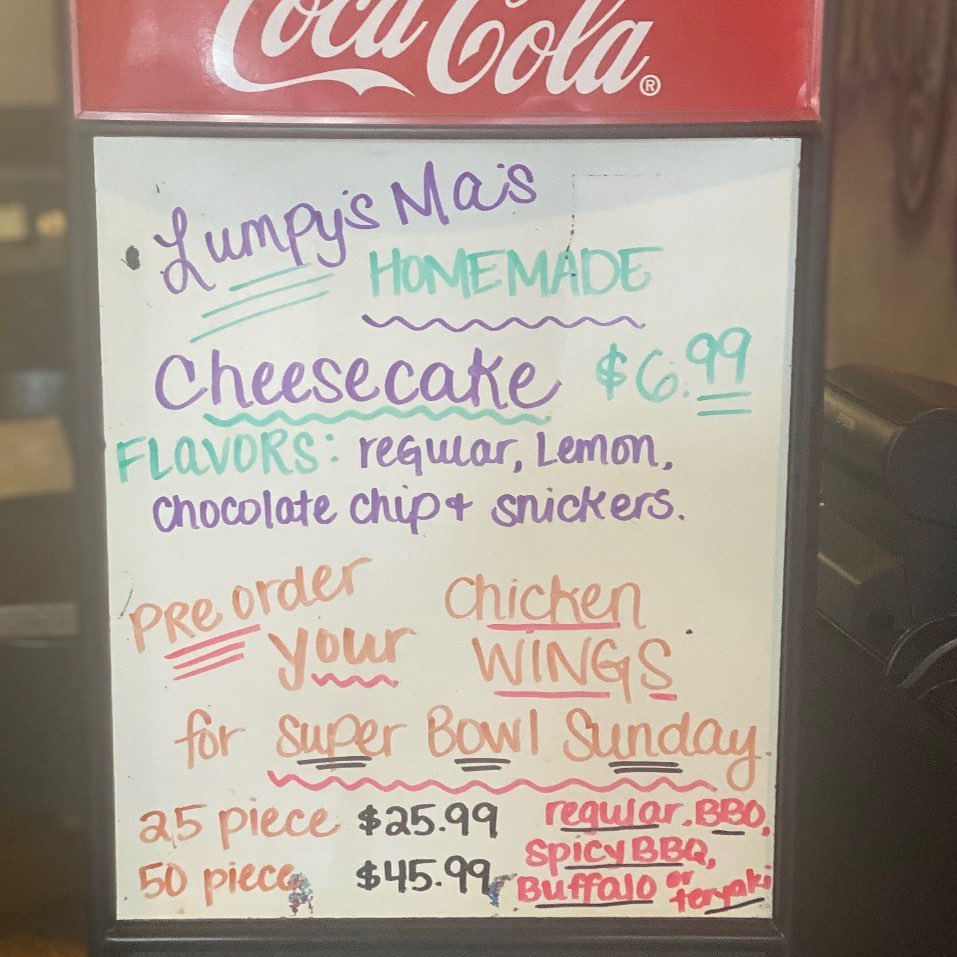 Coca-Cola®
Lumpy's Ma's
HOMEMADE
Cheesecake $6.99
FLAVORS: regular, Lemon,
chocolate chip + snickers.
PRE order Chicken
your WINGS
for Super Bowl Sunday.
25 piece $25.99 regular, BBQ,
50 piece $45.99 spicy BBQ,
Buffalo or teryaki